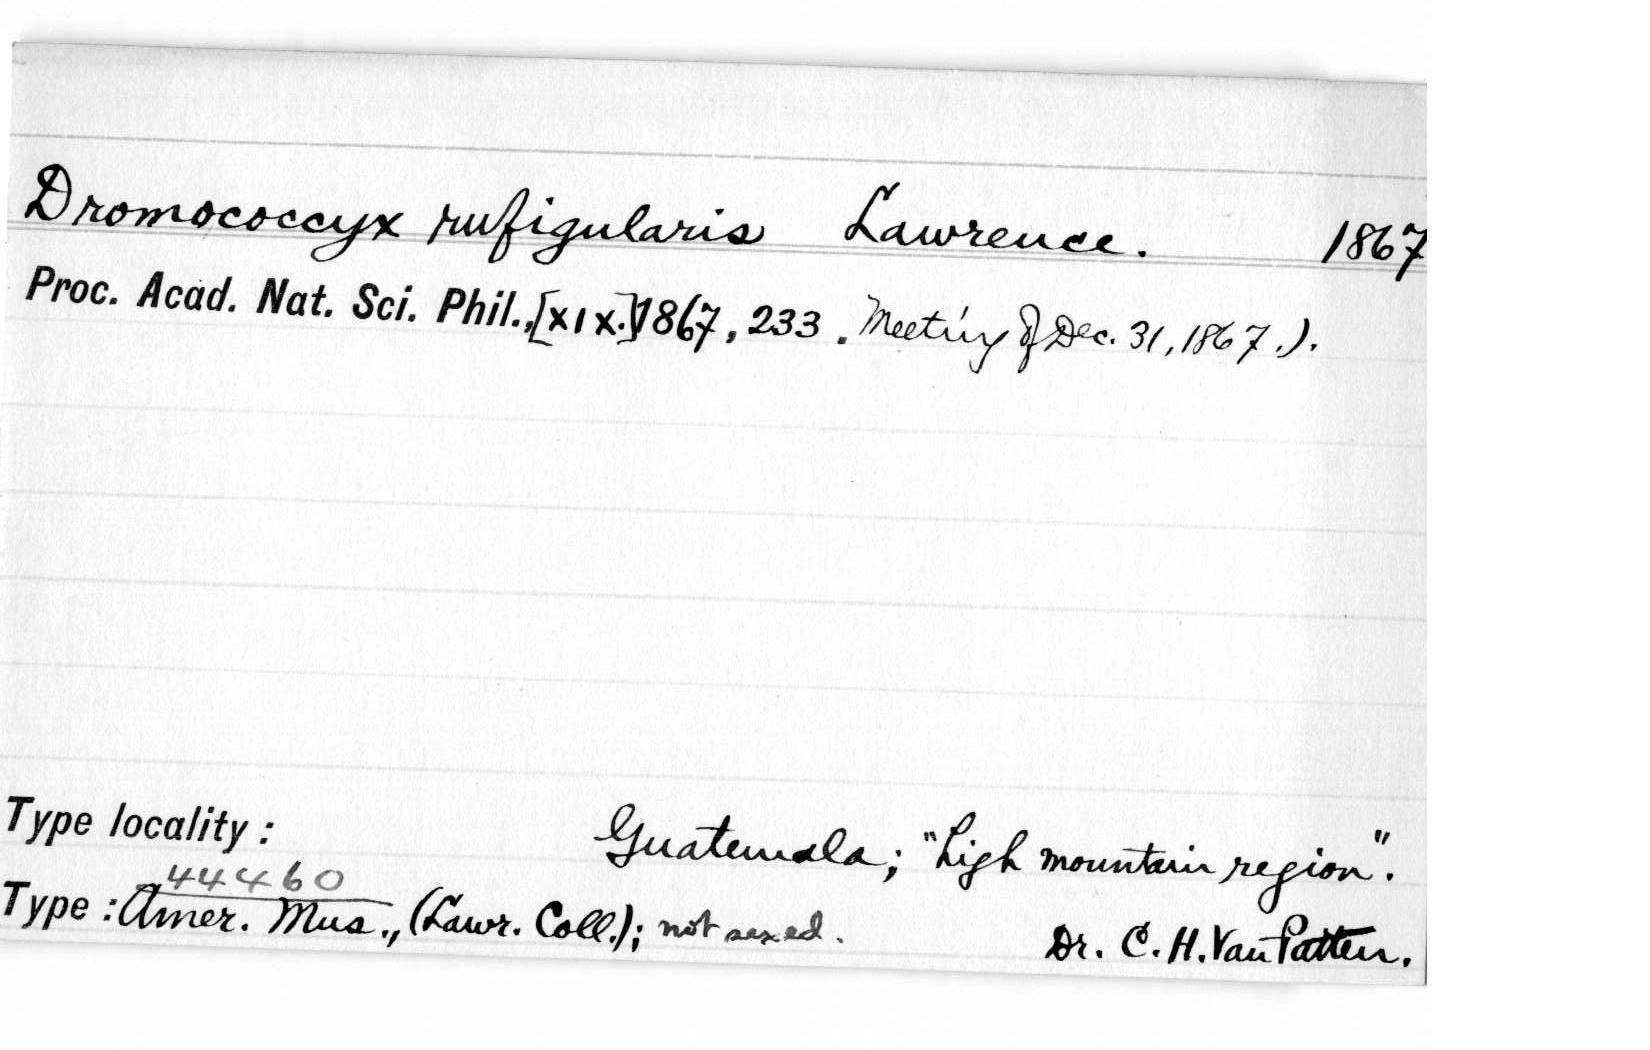 Dromococcyx rufigularis Lawrence. 1867
Proc. Acad. Nat. Sci. Phil., [XIX.] 1867, 233. Meeting of Dec. 31, 1867.).
Type locality: Guatemala; "high mountain region".
44460
Type: Amer. Mus., (Lawr. Coll.); not sexed. Dr. C. H. Van Patten.